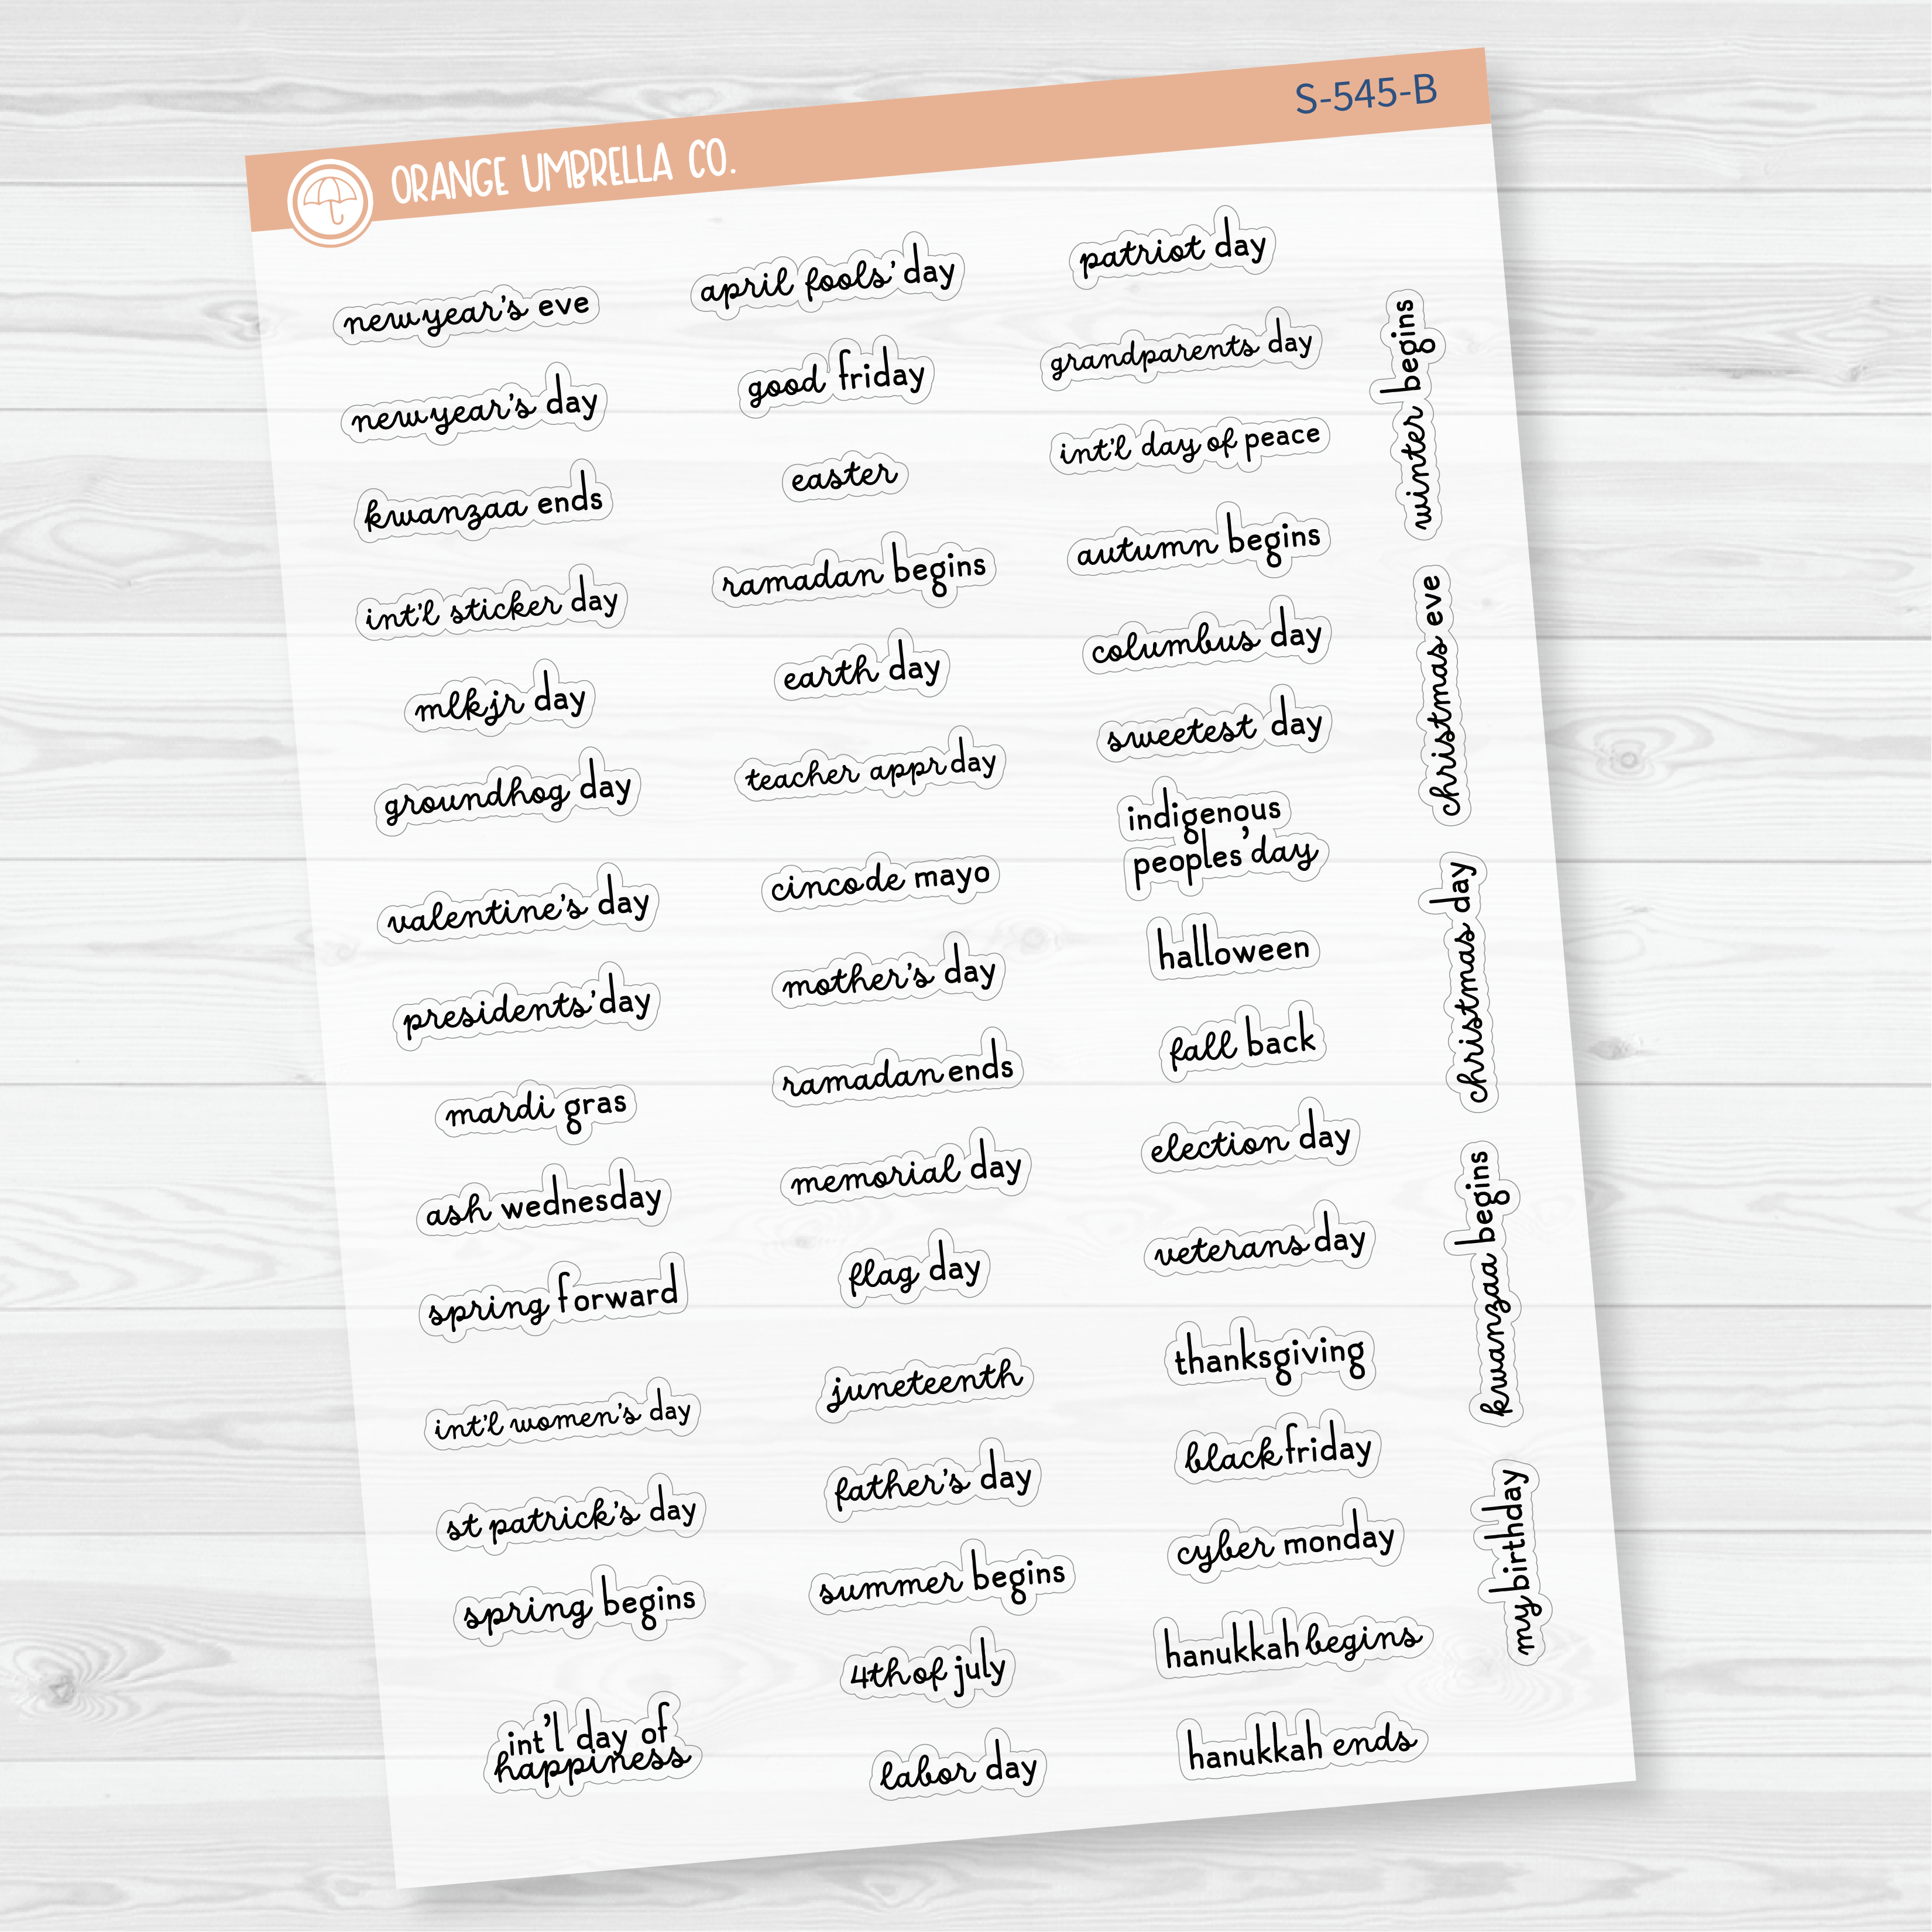 ORANGE UMBRELLA CO.
S-545-B
new year's eve
new year's day
kwanzaa ends
int'l sticker day
mlk jr day
groundhog day
valentine's day
presidents' day
mardi gras
ash wednesday
spring forward
int'l women's day
st patrick's day
spring begins
int'l day of
happiness
april fools' day
good friday
easter
ramadan begins
earth day
teacher appr day
cinco de mayo
mother's day
ramadan ends
memorial day
flag day
juneteenth
father's day
summer begins
4th of july
labor day
patriot day
grandparents day
int'l day of peace
autumn begins
columbus day
sweetest day
indigenous
peoples' day
halloween
fall back
election day
veterans day
thanksgiving
black friday
cyber monday
hanukkah begins
hanukkah ends
winter begins
christmas eve
christmas day
kwanzaa begins
my birthday